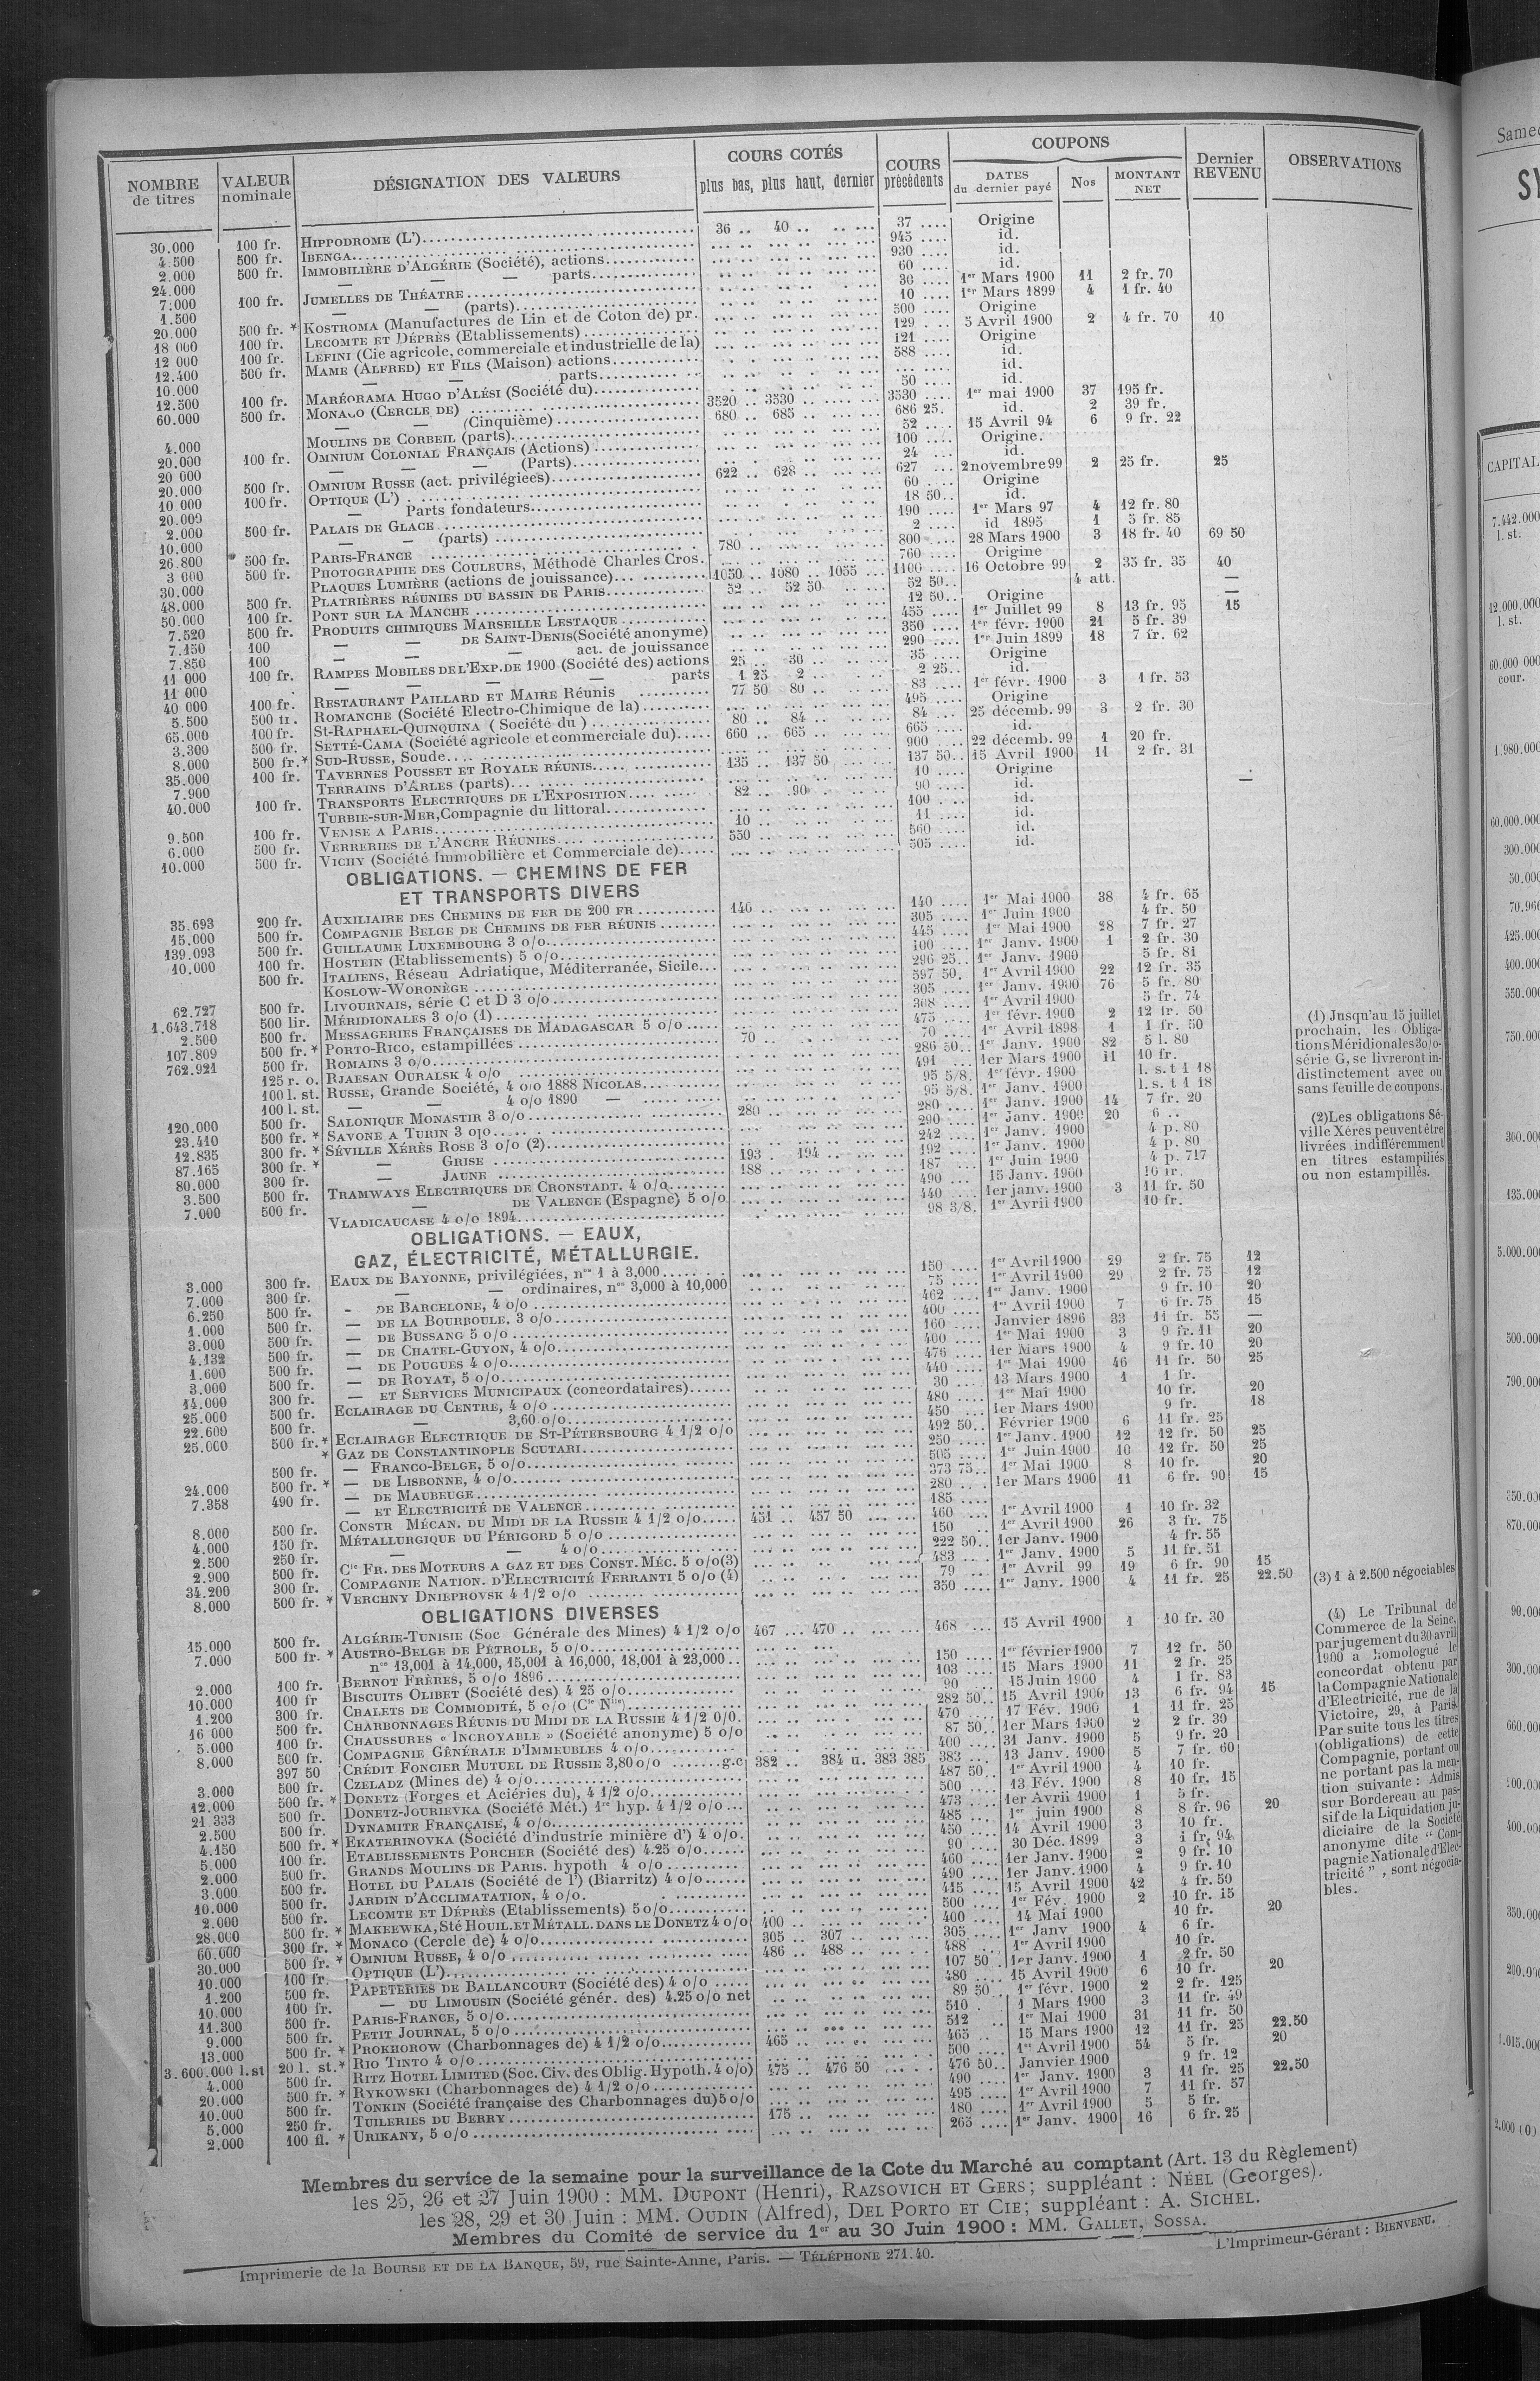 NOMBRE de titres | VALEUR nominale | DÉSIGNATION DES VALEURS | COURS COTÉS plus bas, plus haut, dernier | COURS précédents | COUPONS DATES du dernier payé | Nos | MONTANT NET | Dernier REVENU | OBSERVATIONS
30.000 100 fr. HIPPODROME (L') 36 .. 40 .. 37 .... Origine
4.500 500 fr. IBENGA 945 .... id.
2.000 500 fr. IMMOBILIÈRE D'ALGÉRIE (Société), actions 930 .... id.
24.000 — — parts 60 .... id.
7.000 100 fr. JUMELLES DE THÉATRE 30 .... 1er Mars 1900 11 2 fr. 70
1.500 — — (parts) 10 .... 1er Mars 1899 4 1 fr. 40
20.000 500 fr. * KOSTROMA (Manufactures de Lin et de Coton de) pr. 500 .... Origine
18 000 100 fr. LECOMTE ET DÉPRÈS (Etablissements) 129 .... 5 Avril 1900 2 4 fr. 70 10
12 000 100 fr. LEFINI (Cie agricole, commerciale et industrielle de la) 121 .... Origine
12.400 500 fr. MAME (ALFRED) ET FILS (Maison) actions 588 .... id.
10.000 — — parts id.
12.500 100 fr. MARÉORAMA HUGO D'ALÉSI (Société du) 50 .... id.
60.000 500 fr. MONACO (CERCLE DE) 3520 .. 3530 .. 3530 .... 1er mai 1900 37 195 fr.
— — (Cinquième) 680 .. 685 .. 686 25. id. 2 39 fr.
4.000 MOULINS DE CORBEIL (parts) 52 .... 15 Avril 94 6 9 fr. 22
20.000 100 fr. OMNIUM COLONIAL FRANÇAIS (Actions) 100 .... Origine.
20 000 — — — (Parts) 24 .... id.
20.000 500 fr. OMNIUM RUSSE (act. privilégiées) 622 .. 628 .. 627 ... 2 novembre 99 2 25 fr. 25
10 000 100 fr. OPTIQUE (L') 60 .... Origine
20.000 — Parts fondateurs 18 50.. id.
2.000 500 fr. PALAIS DE GLACE 190 .... 1er Mars 97 4 12 fr. 80
10.000 — — (parts) 2 .... id 1895 1 5 fr. 85
26.800 500 fr. PARIS-FRANCE 780 .. 800 .... 28 Mars 1900 3 18 fr. 40 69 50
3 000 500 fr. PHOTOGRAPHIE DES COULEURS, Méthode Charles Cros. 760 .... Origine
30.000 PLAQUES LUMIÈRE (actions de jouissance) 1050 .. 1080 .. 1055 ... 1100 .... 16 Octobre 99 2 35 fr. 35 40
48.000 500 fr. PLATRIÈRES RÉUNIES DU BASSIN DE PARIS 52 .. 52 50 52 50.. 4 att. —
50.000 100 fr. PONT SUR LA MANCHE 12 50.. Origine —
7.520 500 fr. PRODUITS CHIMIQUES MARSEILLE LESTAQUE 455 .... 1er Juillet 99 8 13 fr. 95 15
7.150 100 — — DE SAINT-DENIS (Société anonyme) 350 .... 1er févr. 1900 21 5 fr. 39
7.850 100 — — — act. de jouissance 290 .... 1er Juin 1899 18 7 fr. 62
11 000 100 fr. RAMPES MOBILES DE L'EXP. DE 1900 (Société des) actions 25 .. 30 .. 35 .... Origine
11 000 — — — — parts 1 25 2 .. 2 25.. id.
40 000 100 fr. RESTAURANT PAILLARD ET MAIRE Réunis 77 50 80 .. 83 .... 1er févr. 1900 3 1 fr. 53
5.500 500 fr. ROMANCHE (Société Electro-Chimique de la) 495 .... Origine
65.000 100 fr. St-RAPHAEL-QUINQUINA (Société du) 80 .. 84 .. 84 ... 25 décemb. 99 3 2 fr. 30
3.300 500 fr. SETTÉ-CAMA (Société agricole et commerciale du) 660 .. 665 .. 665 .... id.
8.000 500 fr. * SUD-RUSSE, Soude 900 ... 22 décemb. 99 1 20 fr.
35.000 100 fr. TAVERNES POUSSET ET ROYALE RÉUNIS 135 .. 137 50 137 50.. 15 Avril 1900 11 2 fr. 31
7.900 TERRAINS D'ARLES (parts) 10 .... Origine
40.000 100 fr. TRANSPORTS ELECTRIQUES DE L'EXPOSITION 82 .. 90 . 90 .... id. —
TURBIE-SUR-MER, Compagnie du littoral 100 .... id.
9.500 100 fr. VENISE A PARIS 10 .. 11 .... id.
6.000 500 fr. VERRERIES DE L'ANCRE RÉUNIES 550 .. 560 .... id.
10.000 500 fr. VICHY (Société Immobilière et Commerciale de) 505 .... id.
OBLIGATIONS. — CHEMINS DE FER
ET TRANSPORTS DIVERS
35.693 200 fr. AUXILIAIRE DES CHEMINS DE FER DE 200 FR 140 .. 140 .... 1er Mai 1900 38 4 fr. 65
15.000 500 fr. COMPAGNIE BELGE DE CHEMINS DE FER RÉUNIS 305 .... 1er Juin 1900 4 fr. 50
139.093 500 fr. GUILLAUME LUXEMBOURG 3 o/o 445 .... 1er Mai 1900 28 7 fr. 27
10.000 100 fr. HOSTEIN (Etablissements) 5 o/o 100 .... 1er Janv. 1900 1 2 fr. 30
500 fr. ITALIENS, Réseau Adriatique, Méditerranée, Sicile 296 25.. 1er Janv. 1900 5 fr. 81
KOSLOW-WORONÈGE 597 50. 1er Avril 1900 22 12 fr. 35
62.727 500 fr. LIVOURNAIS, série C et D 3 o/o 305 .... 1er Janv. 1900 76 5 fr. 80
1.643.718 500 lir. MÉRIDIONALES 3 o/o (1) 308 .... 1er Avril 1900 5 fr. 74
2.500 500 fr. MESSAGERIES FRANÇAISES DE MADAGASCAR 5 o/o 475 .... 1er févr. 1900 2 12 fr. 50
107.809 500 fr. * PORTO-RICO, estampillées 70 .. 70 .... 1er Avril 1898 1 1 fr. 50
762.921 500 fr. ROMAINS 3 o/o 286 50.. 1er Janv. 1900 82 5 l. 80
125 r. o. RJAESAN OURALSK 4 o/o 491 ... 1er Mars 1900 11 10 fr.
100 l. st. RUSSE, Grande Société, 4 o/o 1888 NICOLAS 95 5/8. 1er févr. 1900 l. s. t 1 18
100 l. st. — — 4 o/o 1890 — 95 5/8. 1er Janv. 1900 l. s. t 1 18
120.000 500 fr. SALONIQUE MONASTIR 3 o/o 280 .. 280 .... 1er Janv. 1900 14 7 fr. 20
23.410 500 fr. * SAVONE A TURIN 3 o/o 290 .... 1er Janv. 1900 20 6 ..
12.835 300 fr. * SÉVILLE XÉRÈS ROSE 3 o/o (2) 242 .... 1er Janv. 1900 4 p. 80
87.165 300 fr. * — GRISE 193 . 194 .. 192 .... 1er Janv. 1900 4 p. 80
80.000 300 fr. — JAUNE 188 .. 187 ... 1er Juin 1900 4 p. 717
3.500 500 fr. TRAMWAYS ELECTRIQUES DE CRONSTADT. 4 o/o 490 ... 15 Janv. 1900 10 fr.
7.000 500 fr. — DE VALENCE (Espagne) 5 o/o 440 .... 1er janv. 1900 3 11 fr. 50
VLADICAUCASE 4 o/o 1894 98 3/8. 1er Avril 1900 10 fr.
(1) Jusqu'au 15 juillet
prochain, les Obliga-
tions Méridionales 3 o/o
série G, se livreront in-
distinctement avec ou
sans feuille de coupons.
(2) Les obligations Sé-
ville Xérès peuvent être
livrées indifféremment
en titres estampillés
ou non estampillés.
OBLIGATIONS. — EAUX,
GAZ, ÉLECTRICITÉ, MÉTALLURGIE.
3.000 300 fr. EAUX DE BAYONNE, privilégiées, nos 1 à 3,000 150 .... 1er Avril 1900 29 2 fr. 75 12
7.000 300 fr. — — ordinaires, nos 3,000 à 10,000 75 .... 1er Avril 1900 29 2 fr. 75 12
6.250 500 fr. — DE BARCELONE, 4 o/o 462 .... 1er Janv. 1900 9 fr. 10 20
1.000 500 fr. — DE LA BOURBOULE, 3 o/o 400 .... 1er Avril 1900 7 6 fr. 75 15
3.000 500 fr. — DE BUSSANG 5 o/o 160 .... Janvier 1896 33 11 fr. 55 —
4.132 500 fr. — DE CHATEL-GUYON, 4 o/o 400 .... 1er Mai 1900 3 9 fr. 11 20
1.600 500 fr. — DE POUGUES 4 o/o 476 .... 1er Mars 1900 4 9 fr. 10 20
3.000 500 fr. — DE ROYAT, 5 o/o 440 .... 1er Mai 1900 46 11 fr. 50 25
14.000 300 fr. — ET SERVICES MUNICIPAUX (concordataires) 30 .... 13 Mars 1900 1 1 fr.
25.000 500 fr. ECLAIRAGE DU CENTRE, 4 o/o 480 .... 1er Mai 1900 10 fr. 20
22.600 500 fr. — 3,60 o/o 450 .... 1er Mars 1900 9 fr. 18
25.000 500 fr. * ECLAIRAGE ELECTRIQUE DE ST-PÉTERSBOURG 4 1/2 o/o 492 50.. Février 1900 6 11 fr. 25
* GAZ DE CONSTANTINOPLE SCUTARI 250 .... 1er Janv. 1900 12 12 fr. 50 25
500 fr. — FRANCO-BELGE, 5 o/o 505 .... 1er Juin 1900 10 12 fr. 50 25
24.000 500 fr. * — DE LISBONNE, 4 o/o 373 75.. 1er Mai 1900 8 10 fr. 20
7.358 490 fr. — DE MAUBEUGE 280 .... 1er Mars 1900 11 6 fr. 90 15
— ET ELECTRICITÉ DE VALENCE 185 ....
8.000 500 fr. CONSTR MÉCAN. DU MIDI DE LA RUSSIE 4 1/2 o/o 451 .. 457 50 460 ... 1er Avril 1900 1 10 fr. 32
4.000 150 fr. MÉTALLURGIQUE DU PÉRIGORD 5 o/o 150 ... 1er Avril 1900 26 3 fr. 75
2.500 250 fr. — — 4 o/o 222 50.. 1er Janv. 1900 4 fr. 55
2.900 500 fr. Cie FR. DES MOTEURS A GAZ ET DES CONST. MÉC. 5 o/o (3) 483 ... 1er Janv. 1900 5 11 fr. 51
34.200 300 fr. COMPAGNIE NATION. D'ELECTRICITÉ FERRANTI 5 o/o (4) 79 ... 1er Avril 99 19 6 fr. 90 15
8.000 500 fr. * VERCHNY DNIEPROVSK 4 1/2 o/o 350 .... 1er Janv. 1900 4 11 fr. 25 22.50
(3) 1 à 2.500 négociables
OBLIGATIONS DIVERSES
15.000 500 fr. ALGÉRIE-TUNISIE (Soc Générale des Mines) 4 1/2 o/o 467 ... 470 .. 468 ... 15 Avril 1900 1 10 fr. 30
7.000 500 fr. * AUSTRO-BELGE DE PÉTROLE, 5 o/o
nos 13,001 à 14,000, 15,001 à 16,000, 18,001 à 23,000 150 .... 1er février 1900 7 12 fr. 50
2.000 100 fr. BERNOT FRÈRES, 5 o/o 1896 103 .... 15 Mars 1900 11 2 fr. 25
10.000 100 fr BISCUITS OLIBET (Société des) 4 25 o/o 90 ... 15 Juin 1900 4 1 fr. 83
1.200 300 fr. CHALETS DE COMMODITÉ, 5 o/o (Cie Nlle) 282 50.. 15 Avril 1900 13 6 fr. 94 15
16 000 500 fr. CHARBONNAGES RÉUNIS DU MIDI DE LA RUSSIE 4 1/2 o/o. 470 .... 17 Fév. 1900 1 11 fr. 25
5.000 100 fr. CHAUSSURES « INCROYABLE » (Société anonyme) 5 o/o 87 50.. 1er Mars 1900 2 2 fr. 30
8.000 500 fr. COMPAGNIE GÉNÉRALE D'IMMEUBLES 4 o/o 400 .... 31 Janv. 1900 5 9 fr. 20
397 50 CRÉDIT FONCIER MUTUEL DE RUSSIE 3,80 o/o g.c 382 .. 384 u. 383 385 383 ... 13 Janv. 1900 5 7 fr. 60
3.000 500 fr. CZELADZ (Mines de) 4 o/o 487 50.. 1er Avril 1900 4 10 fr.
12.000 500 fr. * DONETZ (Forges et Aciéries du), 4 1/2 o/o 500 .... 13 Fév. 1900 8 10 fr. 15
21 333 500 fr. DONETZ-JOURIEVKA (Société Mét.) 1re hyp. 4 1/2 o/o 473 .... 1er Avril 1900 1 5 fr.
2.500 500 fr. DYNAMITE FRANÇAISE, 4 o/o 485 .... 1er juin 1900 8 8 fr. 96 20
4.150 500 fr. * EKATERINOVKA (Société d'industrie minière d') 4 o/o. 450 .... 14 Avril 1900 3 10 fr.
5.000 100 fr. ETABLISSEMENTS PORCHER (Société des) 4.25 o/o 90 .... 30 Déc. 1899 3 1 fr. 94
2.000 500 fr. GRANDS MOULINS DE PARIS. hypoth 4 o/o 460 .... 1er Janv. 1900 2 9 fr. 10
3.000 500 fr. HOTEL DU PALAIS (Société de l') (Biarritz) 4 o/o 490 .... 1er Janv. 1900 4 9 fr. 10
10.000 500 fr. JARDIN D'ACCLIMATATION, 4 o/o. 415 .... 15 Avril 1900 42 4 fr. 50
2.000 500 fr. LECOMTE ET DÉPRÈS (Etablissements) 5 o/o 500 .... 1er Fév. 1900 2 10 fr. 15
28.000 500 fr. * MAKEEWKA, Sté HOUIL. ET MÉTALL. DANS LE DONETZ 4 o/o 400 .. 400 .... 14 Mai 1900 10 fr. 20
60.000 300 fr. * MONACO (Cercle de) 4 o/o 305 .. 307 .. 305 .... 1er Janv 1900 4 6 fr.
30.000 500 fr. * OMNIUM RUSSE, 4 o/o 486 .. 488 .. 488 ... 1er Avril 1900 10 fr.
10.000 100 fr. OPTIQUE (L') 107 50 1er Janv. 1900 1 2 fr. 50
1.200 500 fr. PAPETERIES DE BALLANCOURT (Société des) 4 o/o 480 .... 15 Avril 1900 6 10 fr. 20
10.000 100 fr. — DU LIMOUSIN (Société génér. des) 4.25 o/o net 89 50. 1er févr. 1900 2 2 fr. 125
11.300 500 fr. PARIS-FRANCE, 5 o/o 510 . 1 Mars 1900 3 11 fr.
9.000 500 fr. PETIT JOURNAL, 5 o/o 512 1er Mai 1900 31 11 fr. 50
13.000 500 fr. * PROKHOROW (Charbonnages de) 4 1/2 o/o 465 .. 465 .. 15 Mars 1900 12 11 fr. 25 22.50
3.600.000 l. st 20 l. st.* RIO TINTO 4 o/o 500 .... 1er Avril 1900 54 5 fr. 20
4.000 500 fr. RITZ HOTEL LIMITED (Soc. Civ. des Oblig. Hypoth. 4 o/o) 475 .. 476 50 476 50.. Janvier 1900 9 fr. 12
20.000 500 fr. * RYKOWSKI (Charbonnages de) 4 1/2 o/o 490 .... 1er Janv. 1900 3 11 fr. 25 22.50
10.000 500 fr. TONKIN (Société française des Charbonnages du) 5 o/o 495 .... 1er Avril 1900 7 11 fr. 57
5.000 250 fr. TUILERIES DU BERRY 175 .. 180 .... 1er Avril 1900 5 5 fr.
2.000 100 fl. * URIKANY, 5 o/o 265 .... 1er Janv. 1900 16 6 fr. 25
(4) Le Tribunal de
Commerce de la Seine,
par jugement du 30 avril
1900 a homologué le
concordat obtenu par
la Compagnie Nationale
d'Electricité, rue de la
Victoire, 29, à Paris.
Par suite tous les titres
(obligations) de cette
Compagnie, portant ou
ne portant pas la men-
tion suivante : Admis
sur Bordereau au pas-
sif de la Liquidation ju-
diciaire de la Société
anonyme dite " Com-
pagnie Nationale d'Elec-
tricité ", sont négocia-
bles.
Membres du service de la semaine pour la surveillance de la Cote du Marché au comptant (Art. 13 du Règlement)
les 25, 26 et 27 Juin 1900 : MM. DUPONT (Henri), RAZSOVICH ET GERS ; suppléant : NÉEL (Georges).
les 28, 29 et 30 Juin : MM. OUDIN (Alfred), DEL PORTO ET CIE ; suppléant : A. SICHEL.
Membres du Comité de service du 1er au 30 Juin 1900 : MM. GALLET, SOSSA.
Imprimerie de la BOURSE ET DE LA BANQUE, 59, rue Sainte-Anne, Paris. — TÉLÉPHONE 271.40.
L'Imprimeur-Gérant : BIENVENU.
CAPITAL
7.442.000
l. st.
12.000.000
l. st.
60.000 000
cour.
1.980.000
60.000.000
300.000
50.000
425.000
400.000
550.000
750.000